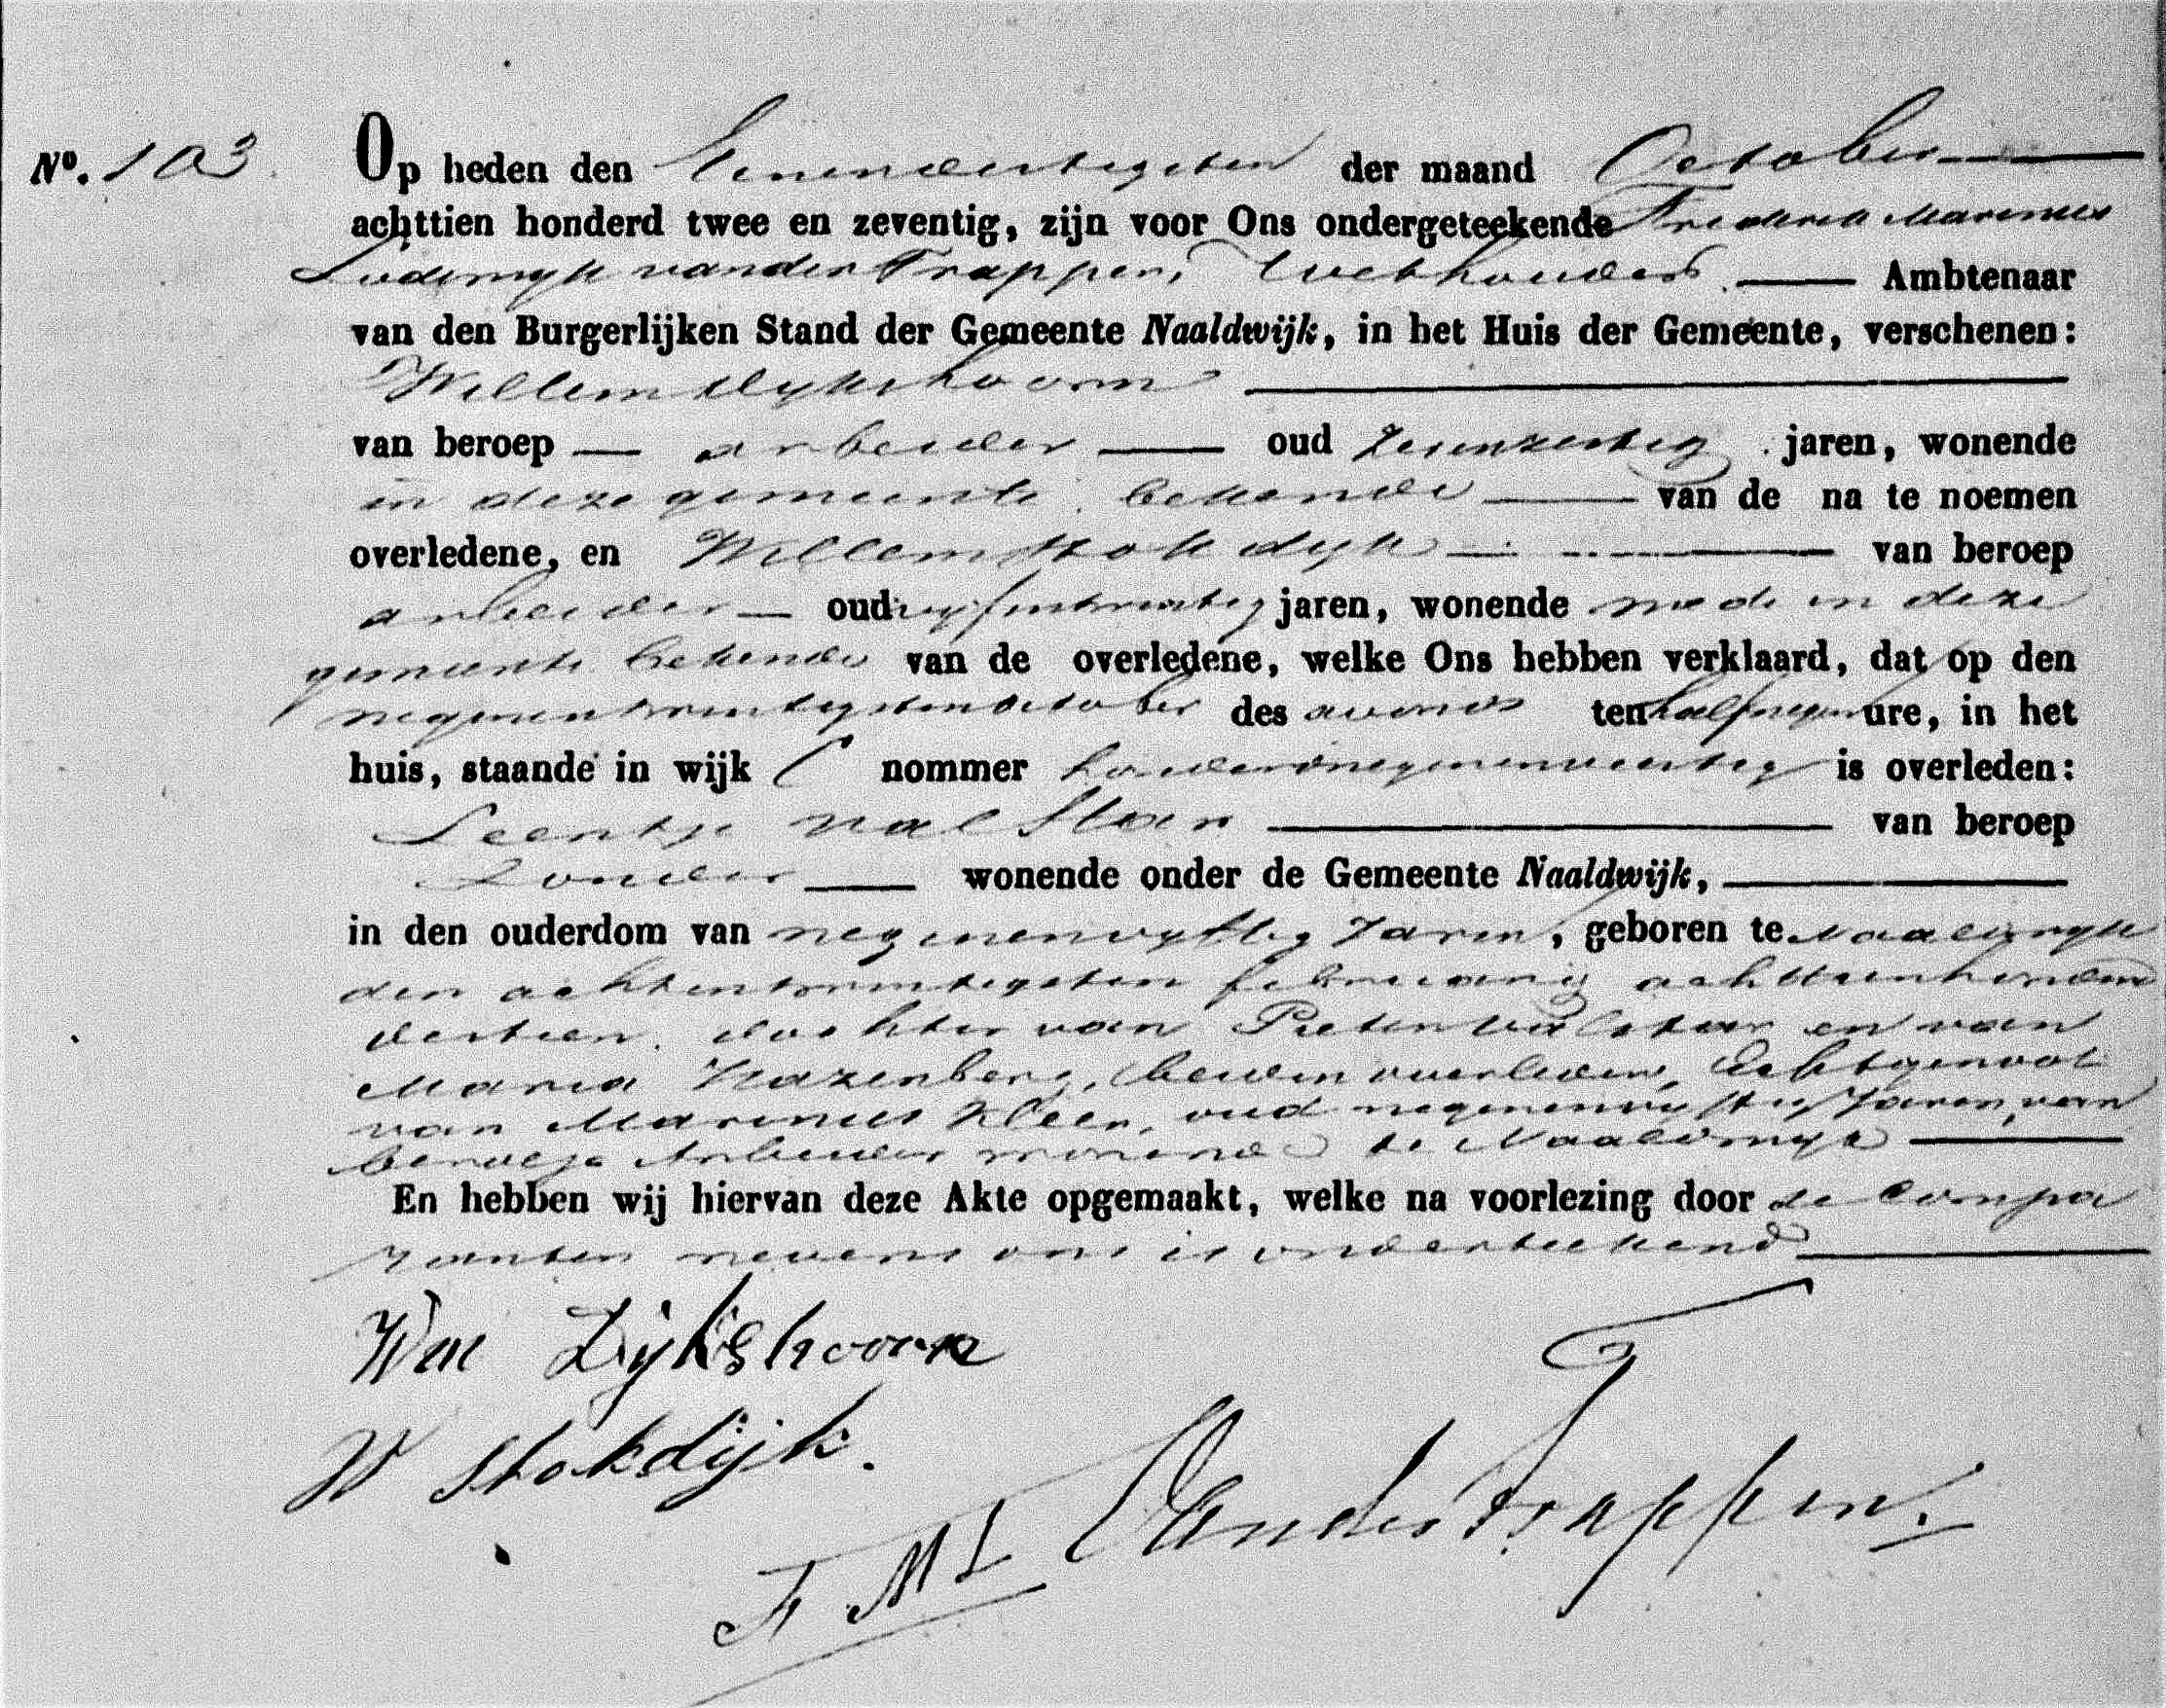 No. 103
Op heden den Eenendertigsten der maand October
achttien honderd twee en zeventig, zijn voor Ons ondergeteekende Frederik Marinus
Lodewyk van der Trappen, Wethouder Ambtenaar
van den Burgerlijken Stand der Gemeente Naaldwijk, in het Huis der Gemeente, verschenen:
Willem Dykshoorn
van beroep arbeider oud zesenzestig jaren, wonende
in deze gemeente bekende van de na te noemen
overledene, en Willem Stokdyk van beroep
arbeider oud jaren, wonende mede in deze
gemeente bekende van de overledene, welke Ons hebben verklaard, dat op den
negenentwintigsten October des avonds ten half negen ure, in het
huis, staande in wijk C nommer is overleden:
Leentje Valstar van beroep
zonder wonende onder de Gemeente Naaldwijk,
in den ouderdom van negenenvyftig Jaren, geboren te Naaldwyk
den achtentwintigsten februarij achttienhonderd
dertien, dochter van Pieter Valstar en van
Maria Hazenberg, beiden overleden, Echtgenoot
van Marinus Kleen, oud negenenvyftig Jaren, van
beroep Arbeider wonende te Naaldwyk
En hebben wij hiervan deze Akte opgemaakt, welke na voorlezing door de Compa
ranten nevens ons is onderteekend
Wm Dijkshoorn
W Stokdijk.
F M L VanderTrappen.